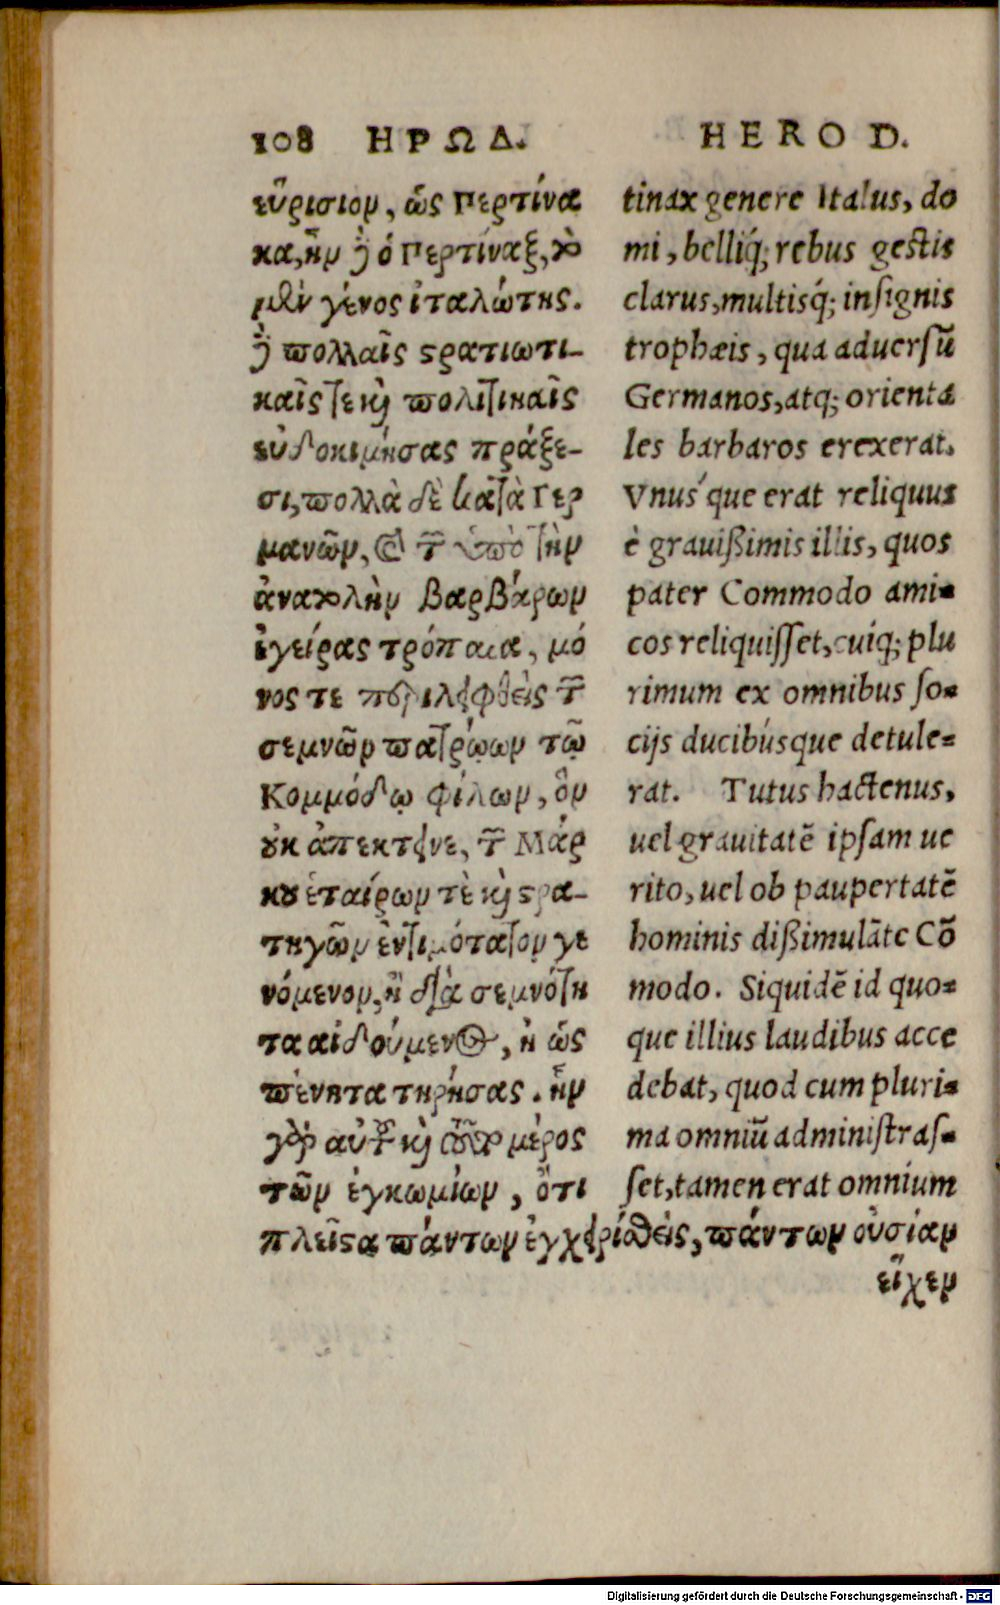 108 ΗΡΩΔ.
εὕρισιον, ὡς Περτίνα
κα, ἦν ὃ ὁ Περτίναξ, τὸ
μὲν γένος ἰταλώτης.
ἐν πολλαῖς στρατιωτι-
καῖς τε καὶ πολιτικαῖς
εὐδοκιμήσας πράξε-
σι, πολλὰ δὲ κατὰ Γερ
μανῶν, καὶ τῶν ὑπὸ τὴν
ἀνατολὴν βαρβάρων
ἐγείρας τρόπαια, μό
νος τε περιλειφθεὶς τῶν
σεμνῶν πατρῴων τῷ
Κομμόδῳ φίλων, ὃν
οὐκ ἀπεκτεινε, τῶν Μάρ
κου ἑταίρων τὲ καὶ στρα-
τηγῶν ἐντιμότατον γε
νόμενον, ἢ διὰ σεμνότη
τα αἰδούμενος, ἢ ὡς
πένητα τηρήσας. ἦν
γὰρ αὐτοῦ καὶ τοῦτο μέρος
τῶν ἐγκωμίων, ὅτι
πλεῖστα πάντων ἐγχειρισθεὶς, πάντων οὐσίαν
εἶχεν
HEROD.
tinax genere Italus, do
mi, belliq́; rebus gestis
clarus, multisq́; insignis
trophæis, qua aduersũ
Germanos, atq; orienta
les barbaros erexerat.
Vnus´que erat reliquus
è grauißimis illis, quos
pater Commodo ami-
cos reliquisset, cuiq́; plu
rimum ex omnibus so-
cijs ducibúsque detule-
rat. Tutus hactenus,
uel grauitatẽ ipsam ue
rito, uel ob paupertatẽ
hominis dißimulãte Cõ
modo. Siquidẽ id quo-
que illius laudibus acce
debat, quod cum pluri-
ma omniũ administras-
set, tamen erat omnium
Digitalisierung gefördert durch die Deutsche Forschungsgemeinschaft - DFG